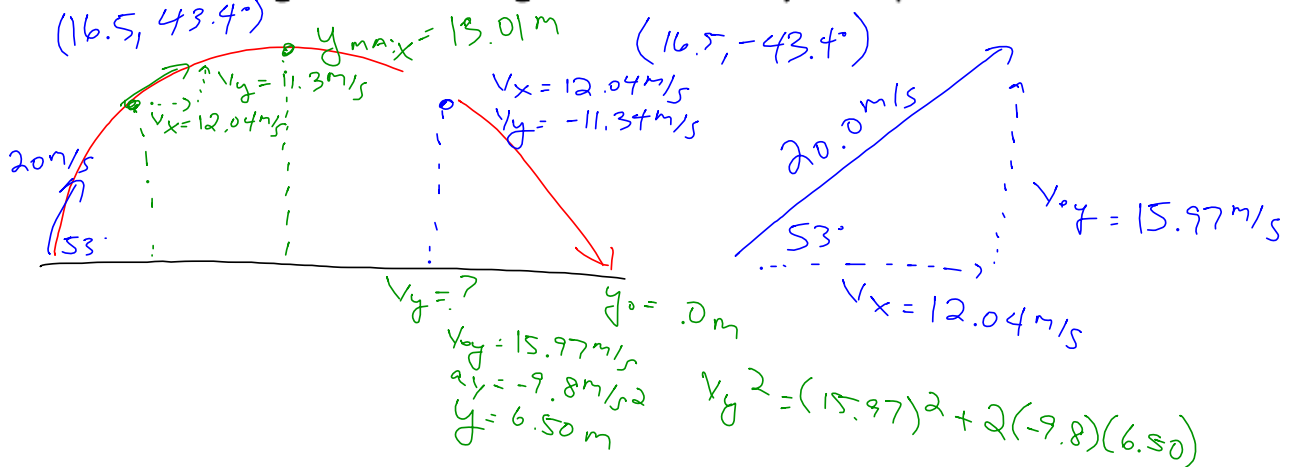 (16.5, 43.4°)
y max = 13.01 m
(16.5, -43.4°)
Vy = 11.3 m/s
Vx = 12.04 m/s
Vx = 12.04 m/s
Vy = -11.34 m/s
20 m/s
53°
20.0 m/s
53°
Voy = 15.97 m/s
Vx = 12.04 m/s
Vy = ?
yo = .0 m
Voy = 15.97 m/s
ay = -9.8 m/s2
y = 6.50 m
Vy² = (15.97)² + 2(-9.8)(6.50)